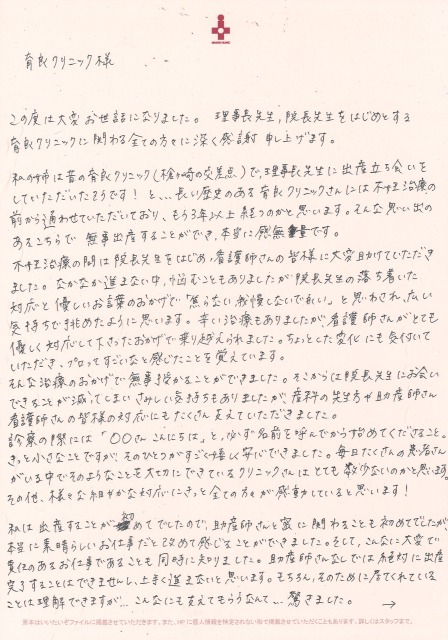 育良クリニック様
この度は大変お世話になりました。 理事長先生，院長先生をはじめとする
育良クリニックに関わる全ての方々に深く感謝 申し上げます。
私の姉は昔の育良クリニック(槍ヶ崎の交差点)で，理事長先生に出産立ち会いを
していただいたそうです！と…長い歴史のある育良クリニックさんには不妊治療の
前から通わせていただいており，もう3年以上経つのかと思います。そんな思い出の
あるこちらで 無事出産することができ，本当に感無量です。
不妊治療の間は院長先生をはじめ，看護師さんの皆様に大変助けていただき
ました。なかなか進まない中，悩むこともありましたが院長先生の落ち着いた
対応と優しいお言葉のおかげで「焦らない我慢しないでよい」と思わされ，広い
気持ちで挑めたように思います。辛い治療もありましたが，看護師さんがとても
優しく対応して下さったおかげで乗り越えられました。ちょっとした変化にも気付いて
いただき，プロってすごいなと感じたことを覚えています。
そんな治療のおかげで無事授かることができました。そこからは院長先生にお会い
できることが減ってしまいさみしい気持ちもありましたが，産科の先生方や助産師さん
看護師さんの皆様の対応にもたくさん支えていただきました。
診察の際には「〇〇さん こんにちは」と，必ず名前を呼んでから始めてくださること。
きっと小さなことですが，そのひとつがすごく嬉しく安心できました。毎日たくさんの患者さん
がいる中でそのようなことを大切にできているクリニックさんはとても数少ないのかと思います。
その他，様々な細やかな対応にきっと全ての方々が感動していると思います！
私は出産することが初めてでしたので，助産師さんと密に関わることも初めてでしたが，
本当に素晴らしいお仕事だと改めて感じることができました。そして，こんなに大変で
責任のあるお仕事であることも同時に知りました。助産師さんなしでは絶対に出産
完了することはできませんし，上手く進まないと思います。もちろん，そのために居てくれている
ことは理解できますが…こんなにも支えてもらうなんて…驚きました。 →
原本はいいたいぞファイルに掲載させていただきます。また、HPに個人情報を特定されない形で掲載させていただくこともあります。詳しくはスタッフまで。